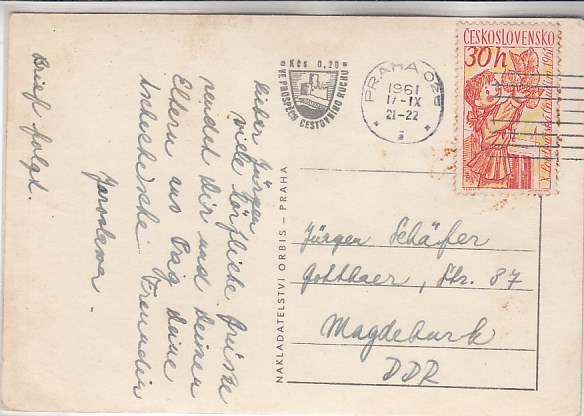 Brief folgt.
Lieber Jürgen
viele
Grüsse
sendet Dir und Deinen
Eltern aus Prag Deine
tschechische Freundin
Jaroslava.
Kčs 0,20
VE PROSPĚCH CESTOVNÍHO RUCHU
PRAHA 02
1961
17-IX
21-22
ČESKOSLOVENSKO
30h
NAKLADATELSTVÍ ORBIS – PRAHA
Jürgen Schäfer
Str. 87
Magdeburk
DDR